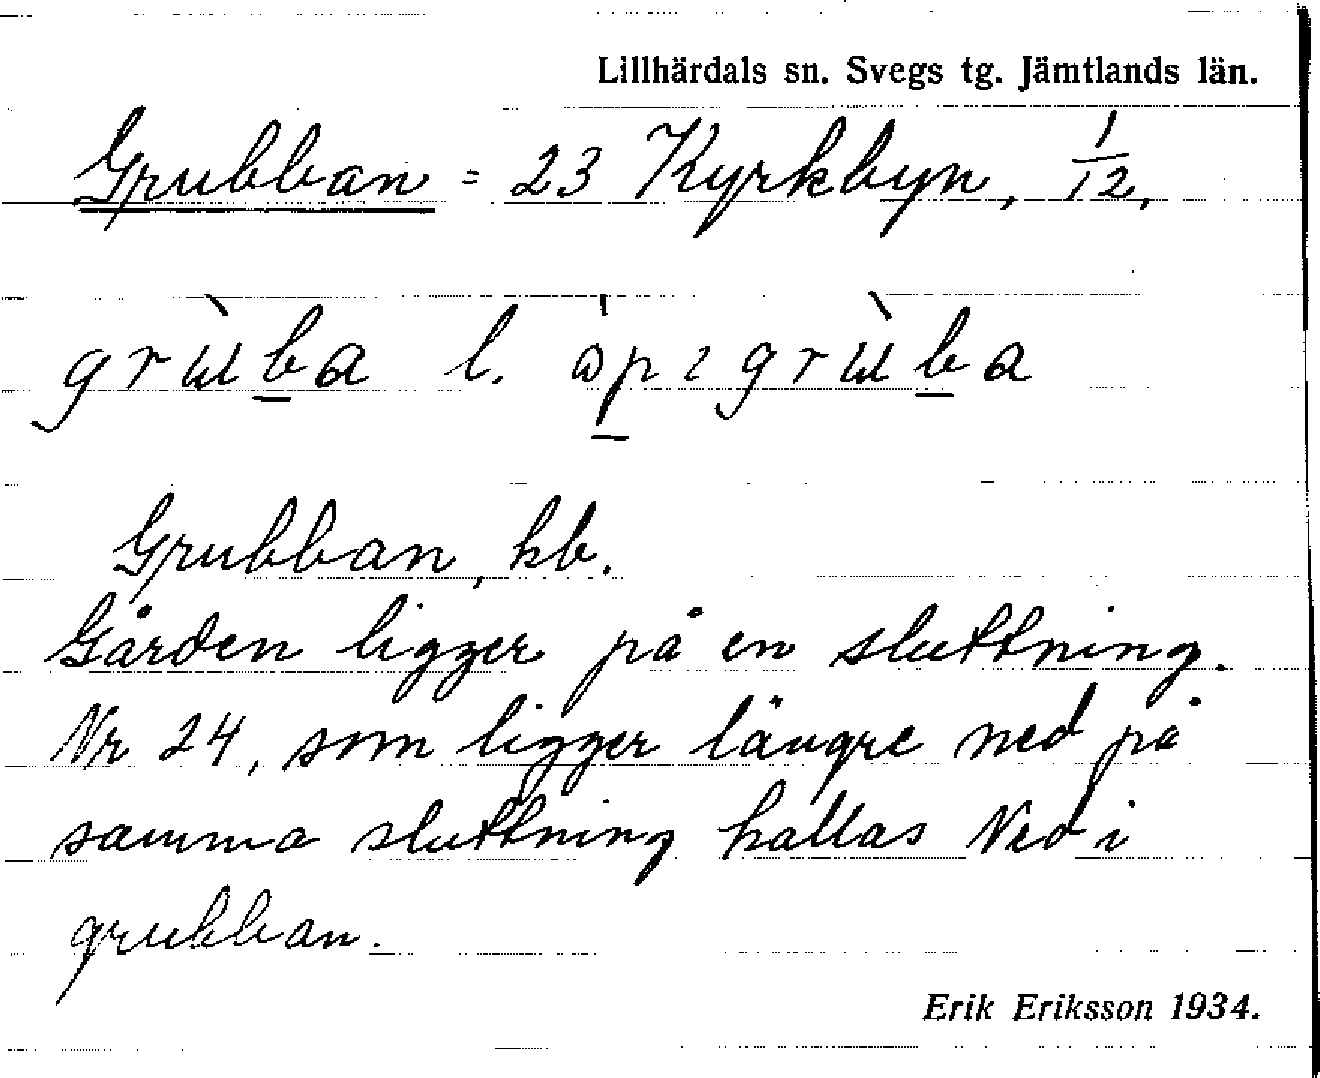 Lillhärdals sn. Svegs tg. Jämtlands län.
Grubban = 23 Kyrkbyn, 1/12,
grùba l. åpigrùba
Grubban, kb.
Gården ligger på en sluttning.
Nr 24, som ligger längre ned på
samma sluttning kallas Ned i
grubban.
Erik Eriksson 1934.